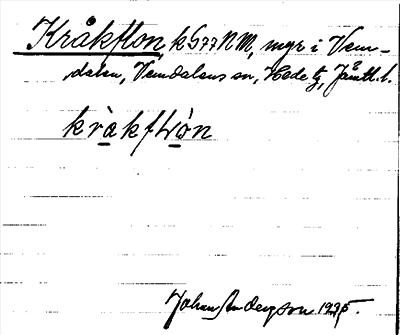 Kråkflon k G77NM, myr i Vem-
dalen, Vemdalens sn, Hede tg, Jämtl. l.
kràkfLòn
Johan Andersson 1935.